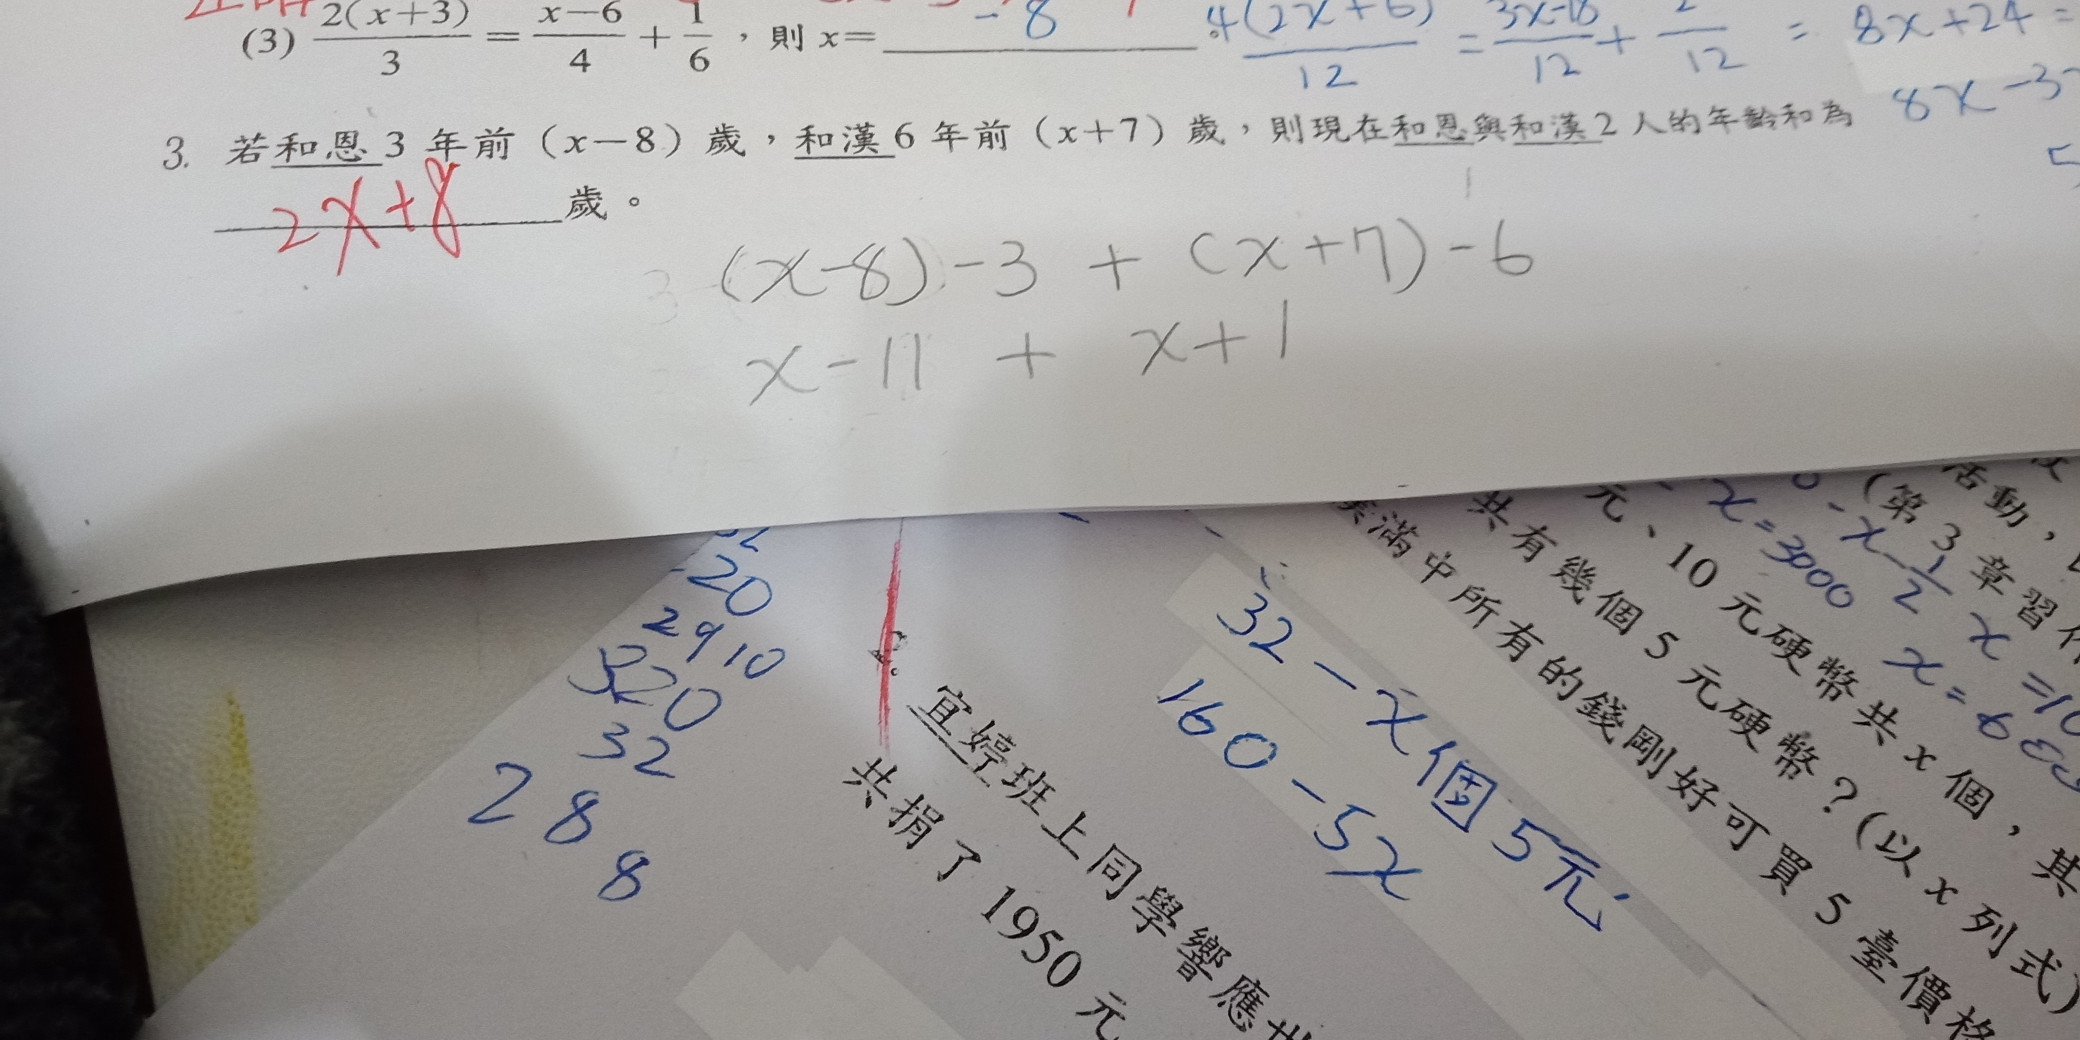 (3) 2(x+3)/3 = x-6/4 + 1/6，則 x= -8
4(2x+6)/12 = 3x-18/12 + 2/12 = 8x+24=
8x-3
3. 若和恩3年前（x-8）歲，和漢6年前（x+7）歲，則現在和恩與和漢2人的年齡和為
2x+8 歲。
(x-8)-3 + (x+7)-6
x-11 + x+1
20
2910
320
32
288
宜婷班上同學響應
共捐了1950元
32-x個5元
160-5x
滿中所有的錢剛好可買5臺價格
共有幾個5元硬幣？（以x列式）
元、10元硬幣共x個，其
x=3000
(第3章習作
-x-1/2 x=10
x=6
活動，